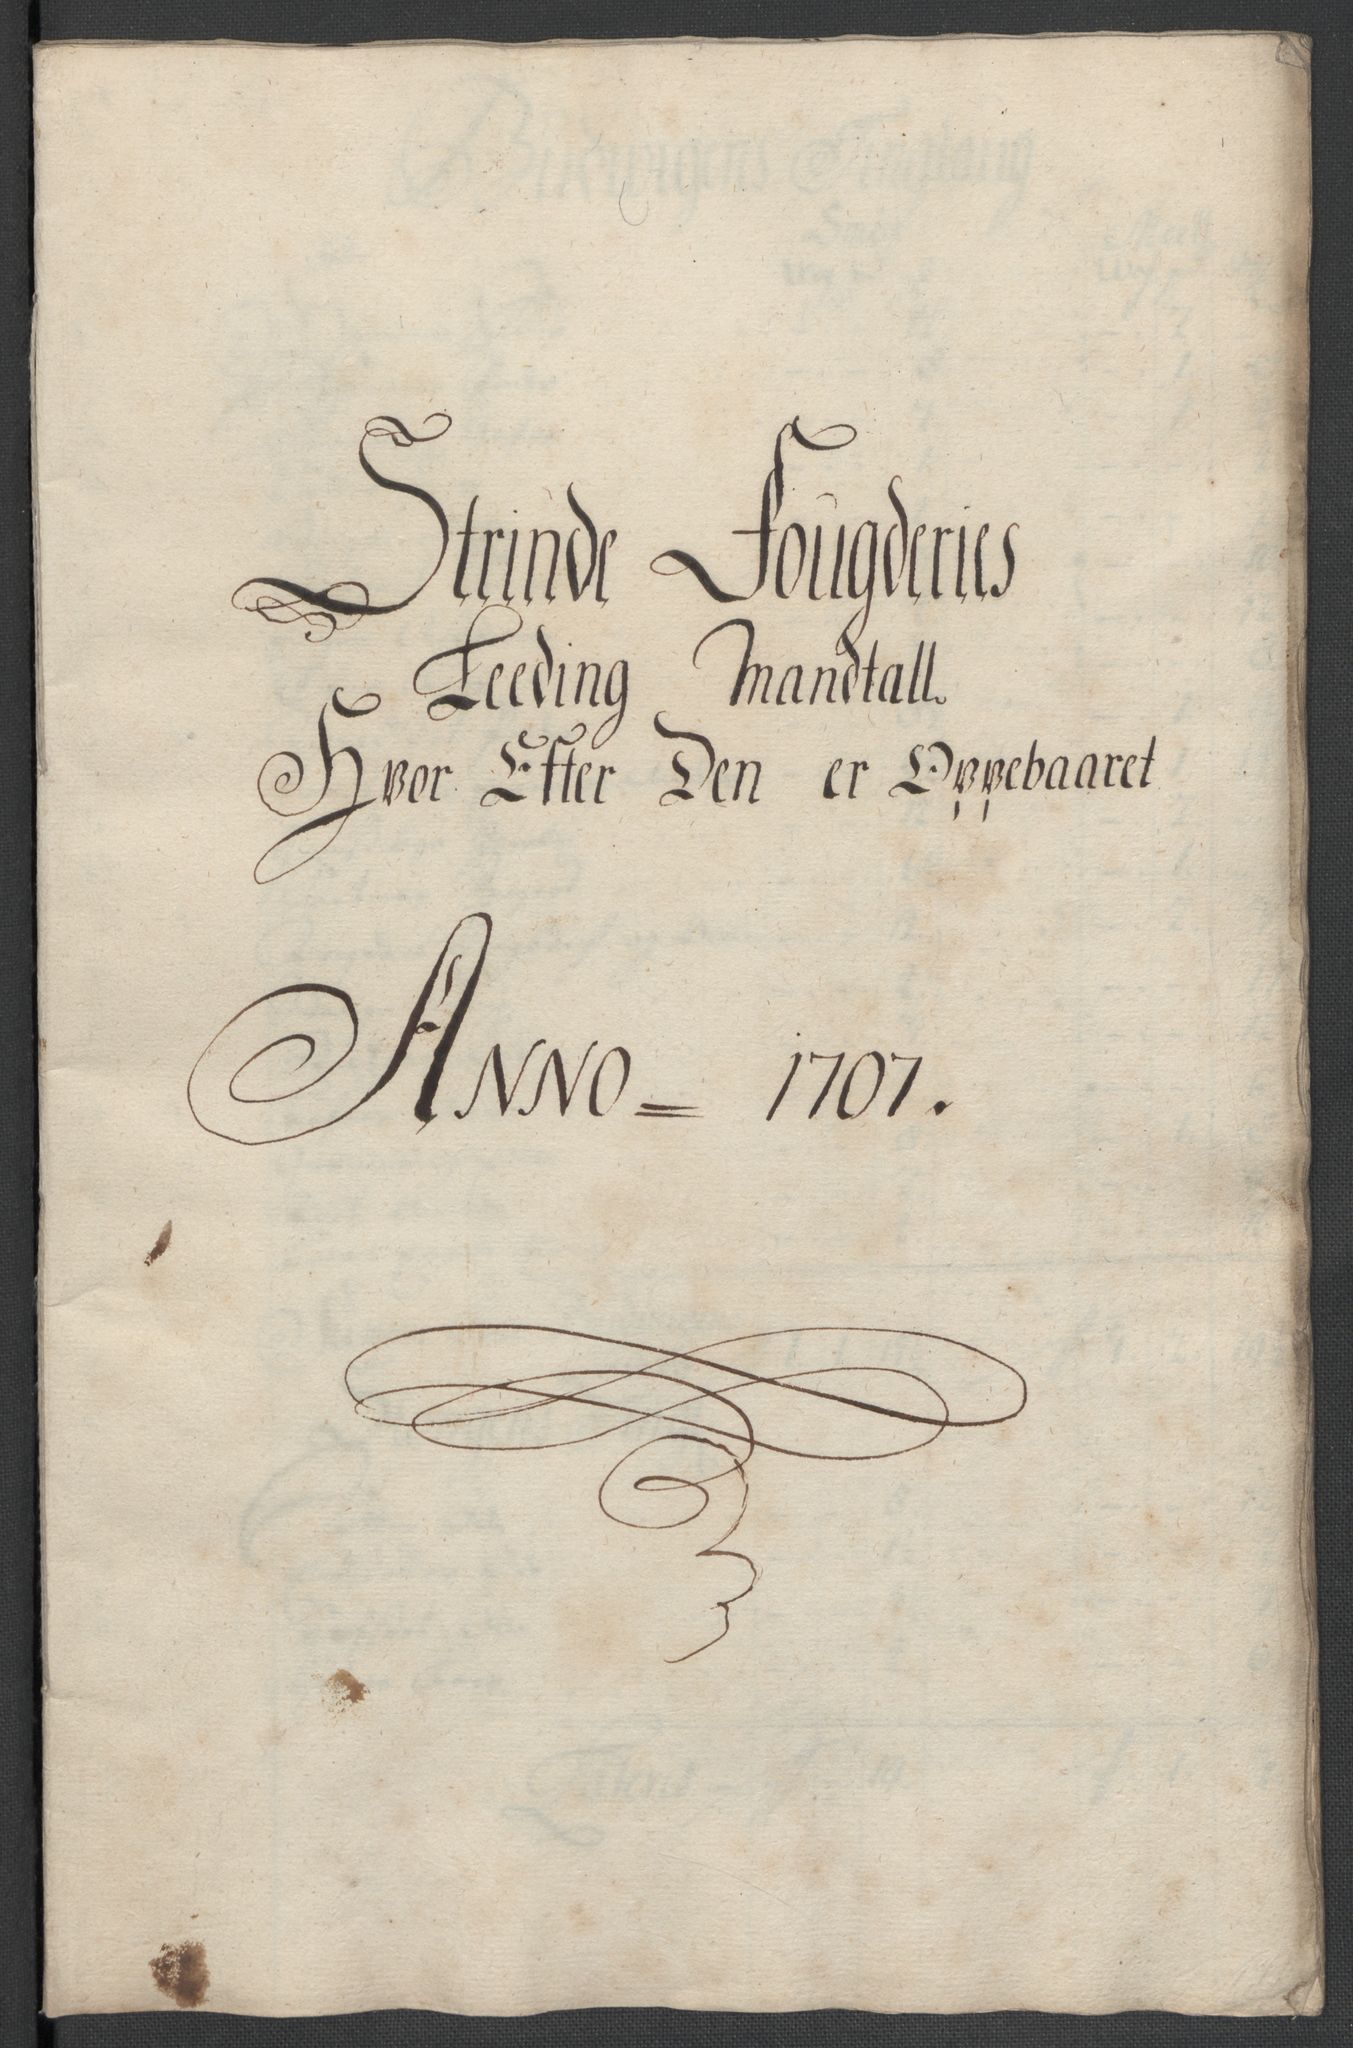 Strinde Fougderies
Leeding Mandtall.
Hvor Efter Den er Oppebaaret
ANNO = 1707.